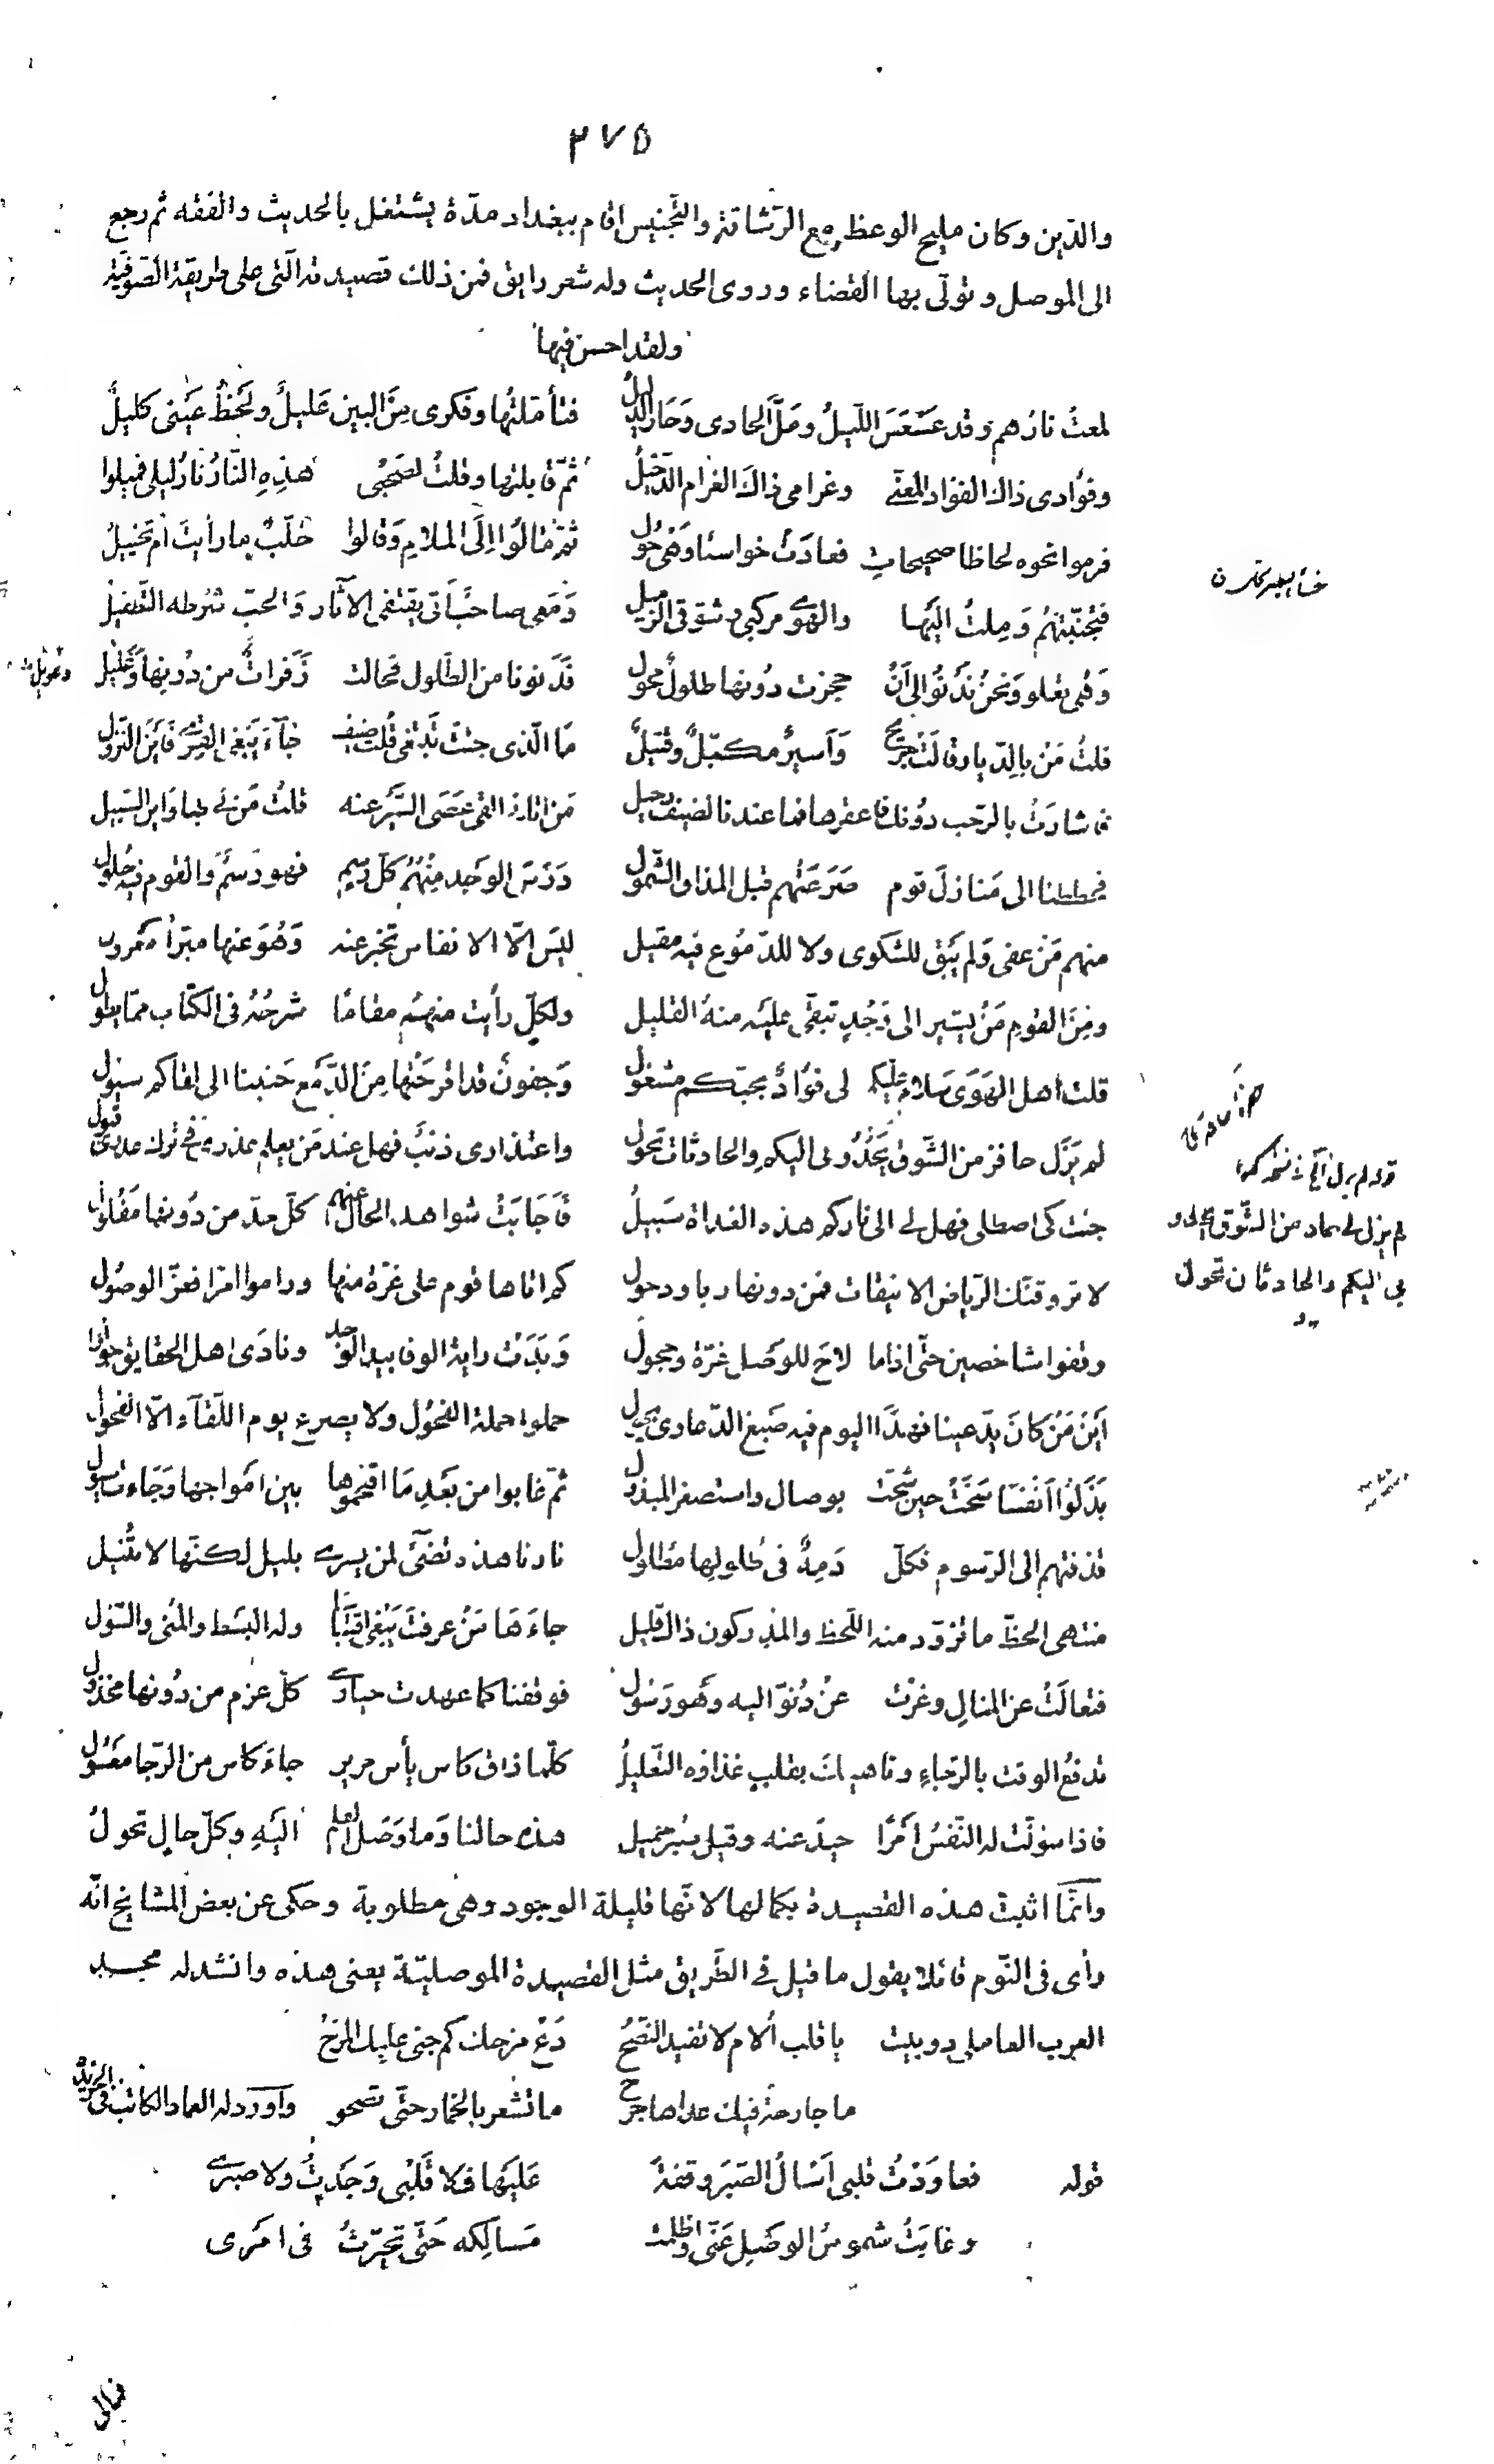 ٢٧٥
والدّين وكان مليح الوعظ مع الرّشاقة والتّجنيس اقام ببغداد مدّة يشتغل بالحديث والفقه ثم رجع
الى الموصل وتولّى بها القضاء وروى الحديث وله شعر رايق فمن ذلك قصيدته الّتى على طريقة الصّوفيّة
ولقد احسن فيها
لمعتْ نارُهم وقد عَسْعَسَ اللّيلُ ومَلَّ الحادى وَحَار الدليلُ فتأمّلتُها وفكرى مِنَ البين عَليلٌ ولَحْظُ عَيْنى كليلٌ
وفؤادى ذاك الفؤاد المعنّى وغرامى ذاك الغرام الدّخيلُ ثمّ قابلتها وقلتُ لصَحْبى هذِهِ النّارُ نارُ ليلى فميلوا
فرموا نحوه لحاظا صحيحاتٍ فعادَتْ خواسئا وَهْى حُول ثمّ مَالُوا اِلَى الملامِ وَقالوا خلّبٌ ما رأيتَ أم تخييلُ
فتجنّبتهُم وَمِلتُ اليْها والهوى مركبى وشوقى الزّميل وَمَعى صاحبٌ اَتى يقتفى الآثار وَالحبّ شرطه التّطفيل
وَهْى تعلو وَنحنُ نَدْنُو الى اَنْ حجزت دُونها طلولٌ محول فَدَنونا من الطّلول فحالت زَفراتٌ من دُونها وَغَليل
قلتُ مَنْ بالدّيار قالَتْ جَريح وَاَسيرٌ مكبّلٌ وقتيلٌ مَا الّذى جئتَ تَبتغى قُلت ضيف جَآءَ يَبْغى القِرى فَاَيْنَ النّزول
فاشارَتْ بالرّحب دُونك فاعقرها فما عندنا لضيف رحيل مَن اتانا القى عَصَى السَّيْر عنه قلتُ مَن لى بها وَاين السّبيل
فحططنا الى مَنازلَ قوم صَرَعَتْهم قبل المذاق الشّمول دَرَسَ الوَجد مِنْهُمْ كلّ رسمٍ فهو رَسْمٌ والقوم فيه حُلول
منهم مَنْ عفى وَلم يَبْق للشكوى ولا للدّمُوع فيه مقيل ليْسَ الّا الانفاس تخبر عنه وَهُوَ عنها مبَرّأ معزول
ومِنَ القومِ مَنْ يشير الى وَجْدٍ تبقّى عليْه منهُ القليل ولكلّ رأيت منهُم مقامًا شرحُهُ فى الكتاب ممّا يطول
قلت اهل الهَوَى سَلام عليكم لى فؤادٌ بحبّكم مشغول وَجفونٌ قد اقرحَتْها مِنَ الدّمْع حَنينا الى لقاكم سيول
لم يَزَل حافز من الشّوق يَحْدُونى اليكم والحادثات تحُول واعتذارى ذنبٌ فهل عند مَن يعلم عذرى فى ترك عذرى قبول
جئت كى اصطلى فهل لى الى ناركم هذه الغداة سَبيلُ فَاَجَابَتْ شواهد الحال عنهم كلّ حدّ من دُونها مَفلول
لا تروقنّك الرّياض الانيقات فمن دونها ربا ودحول كم اتاها قوم على غرّة منها وراموا امرا فعزّ الوصُول
وقفوا شاخصين حتّى اذا ما لاحَ للوَصل غرّة وحجول وَبَدَتْ راية الوفا بيد الوَجد ونادَى اهل الحقايق جولوا
اَيْنَ مَنْ كانَ يدّعينا فهذَا اليوم فيه صَبغ الدّعاوى يحول حملوا حملة الفحُول ولا يصرع يوم اللّقآء الّا الفحول
بَذَلُوا اَنفسًا سَخَتْ حين شحّت بوصال واستصغر المبذول ثمّ غابوا من بَعْدِ مَا اقتحموها بين امْواجها وَجَاءت سيول
قذفتهم الى الرّسوم فكلّ دَمِهٌ فى طلولها مطلول نارنا هذه تضىئُ لمن يسرى بليل لكنّها لا تُنيل
منتهى الحظّ ما تزوّد منه اللّحظ والمدركون ذاك قليل جاءَهَا مَنْ عرفتَ يَبْغى اقتباسا وله البَسط والمُنى والسّول
فتعالَتْ عن المنالِ وعزّت عنْ دُنوّ اليه وَهو رَسُول فوقفنا كما عهدت حيارى كلّ عزم من دُونها مخذول
ندفعُ الوقت بالرّجاءِ وناهيك بقلب غذاؤه التّعليلُ كلّما ذاق كاس يأس مرير جاءَ كاس من الرّجا معسُول
فاذا سَوّلت له النّفسُ اَمرًا حيدَ عنه وقيل صَبر جميل هذه حالنا وَما وَصَل العلم اليْهِ وكلّ حالٍ تحولُ
وانّما اثبت هذه القصيدة بكمالها لانّها قليلة الوجود وهى مطلوبة وحكى عن بعض المشايخ انّه
رأى فى النّوم قائلا يقول ما قيل فى الطّريق مثل القصيدة الموصليّة يعنى هذه وانشد له مجد
العرب العاملى دوبيت يا قلب اُلام لا تفيد النّصحُ دَعْ مزحك كم جنى عليك المزحُ
ما جارحة فيك عداها جرح ما تشعر بالخمار حتّى تصحو واَورد له العماد الكاتب فى الخريدة
قوله فعاوَدْتُ قلبى اَسْالُ الصّبرَ وقفةً عَليْها فَلا قَلْبى وَجَدتُ ولا صبرى
وغابَتْ شموسُ الوصْلِ عَنّى واظلمت مَسالِكه حَتّى تحيّرتُ فى امرى
قوله لم يزل الخ فى نسخة كذا
لم يزل لى حاد من الشوق يحدو
بى اليكم والحادثان تحول